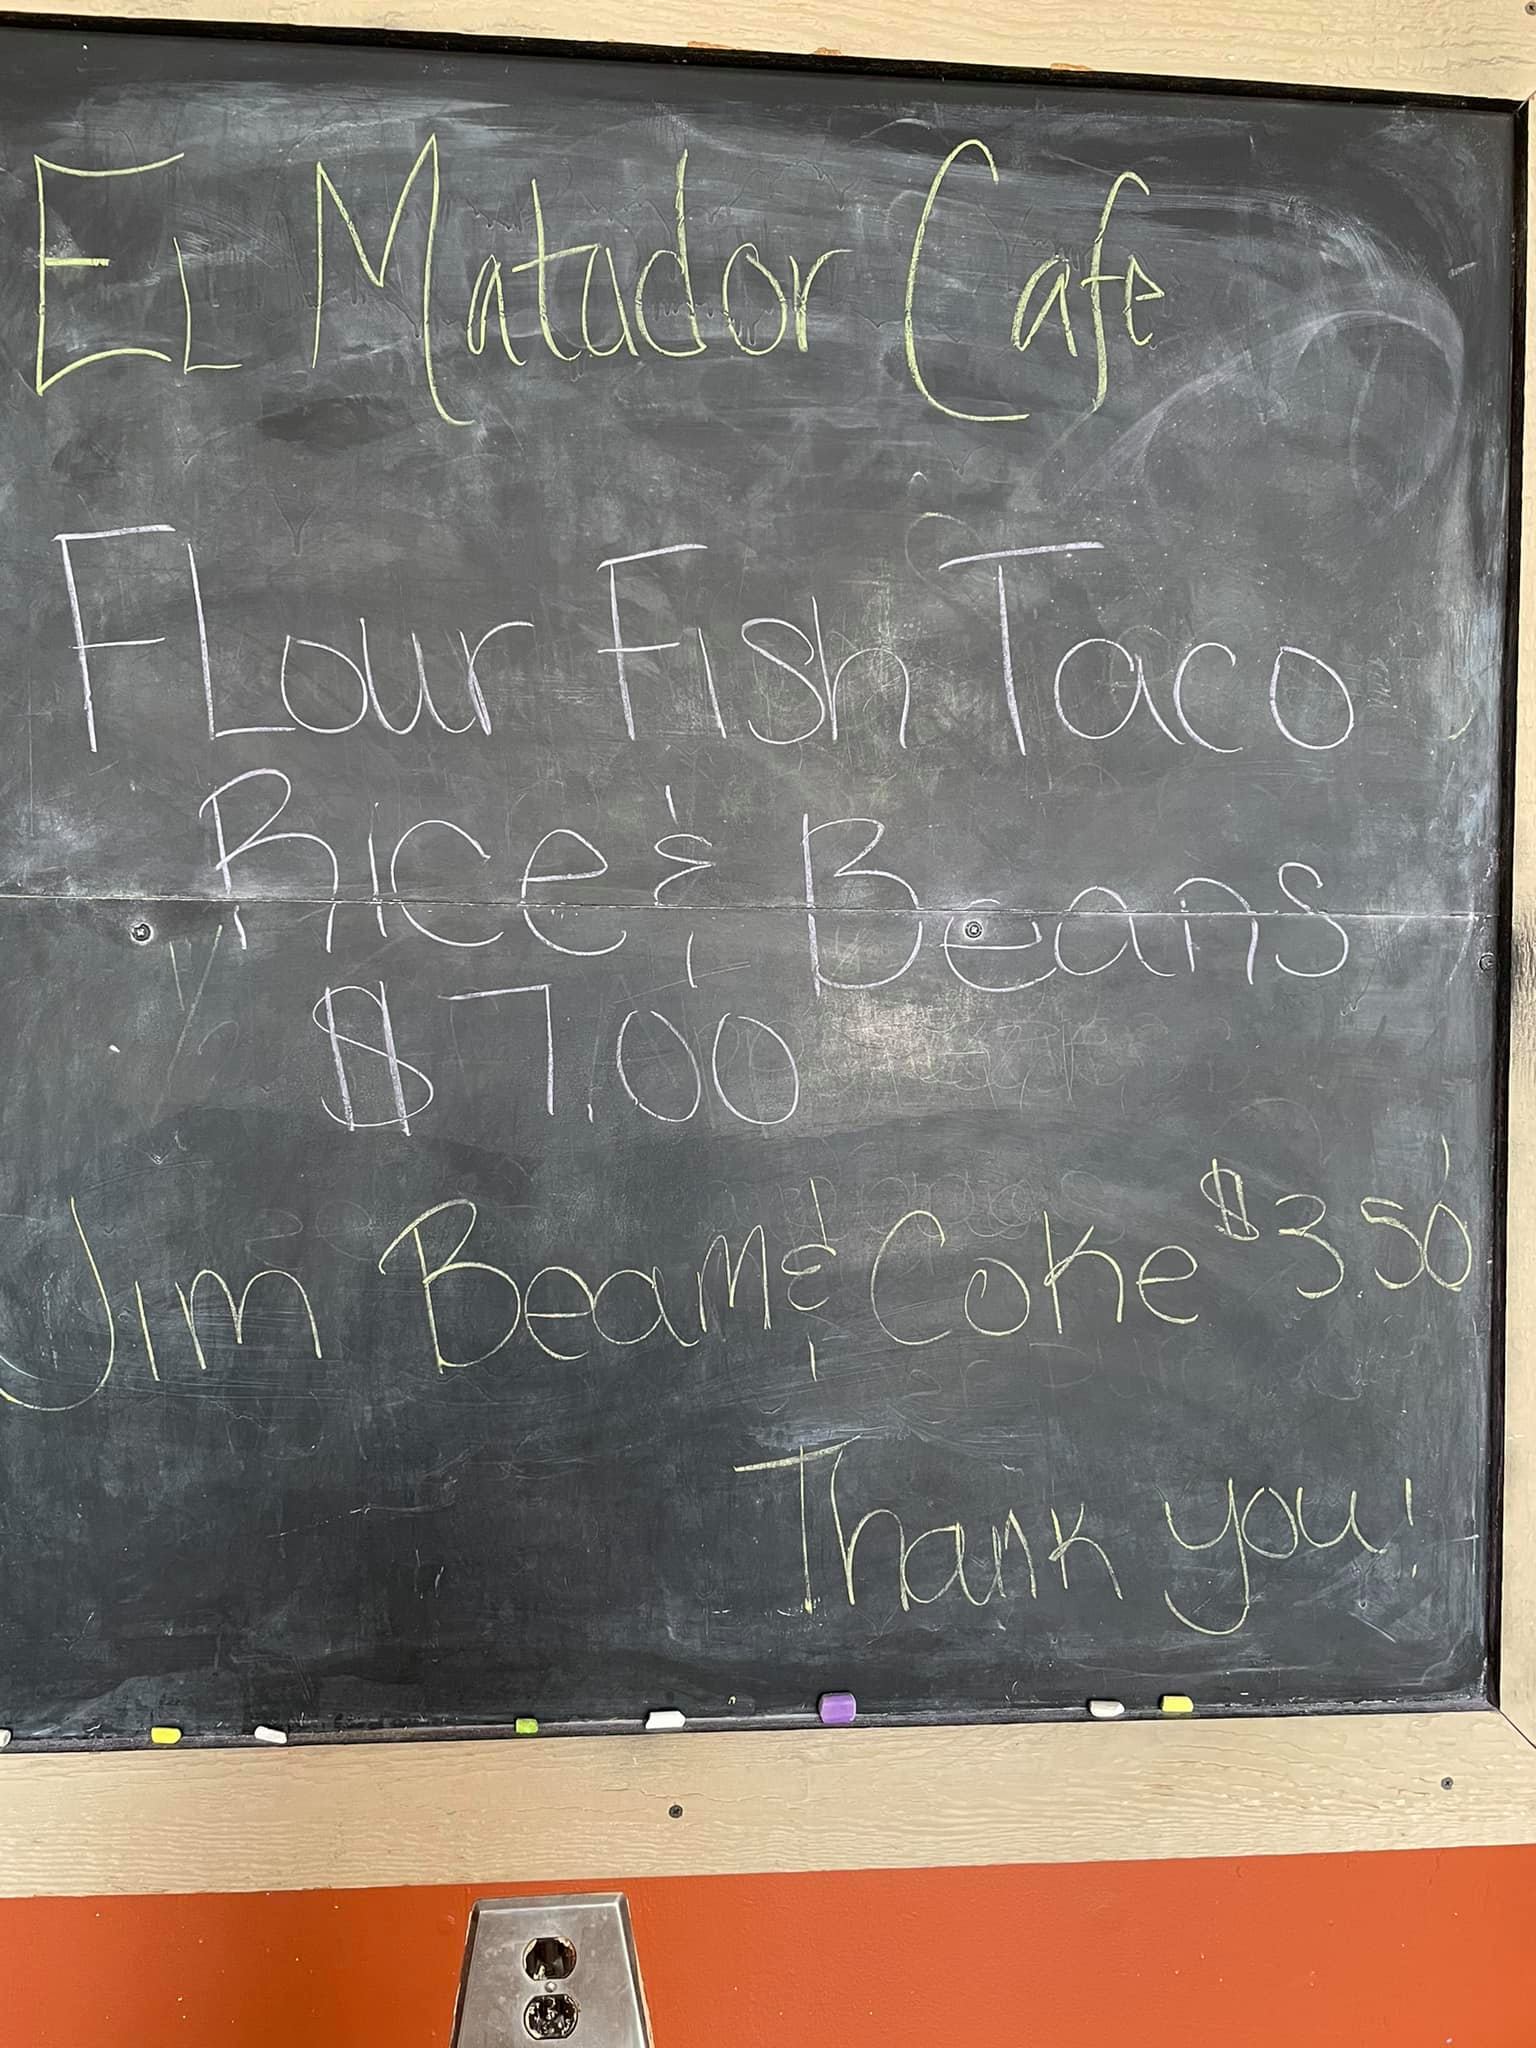 El Matador Cafe
Flour Fish Taco
Rice & Beans
$7.00
Jim Beam & Coke $3.50
Thank you!